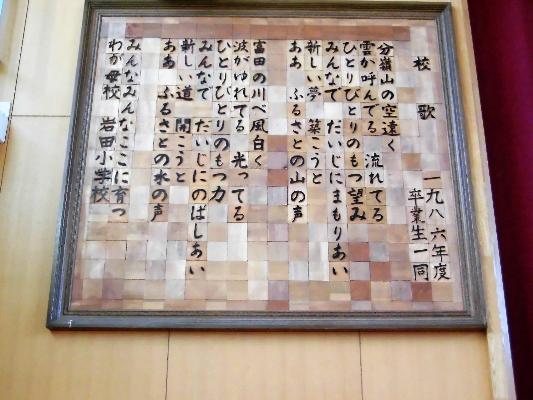 校歌
一九八六年度
卒業生一同
分嶺山の空遠く
雲が呼んでる 流れてる
ひとりびとりのもつ望み
みんなで だいじにまもりあい
新しい夢 築こうと
ああ ふるさとの山の声
富田の川べ風白く
波がゆれてる 光ってる
ひとりびとりのもつ力
みんなで だいじにのばしあい
新しい道 開こうと
ああ ふるさとの水の声
みんなみんなここに育つ
わが母校 岩田小学校